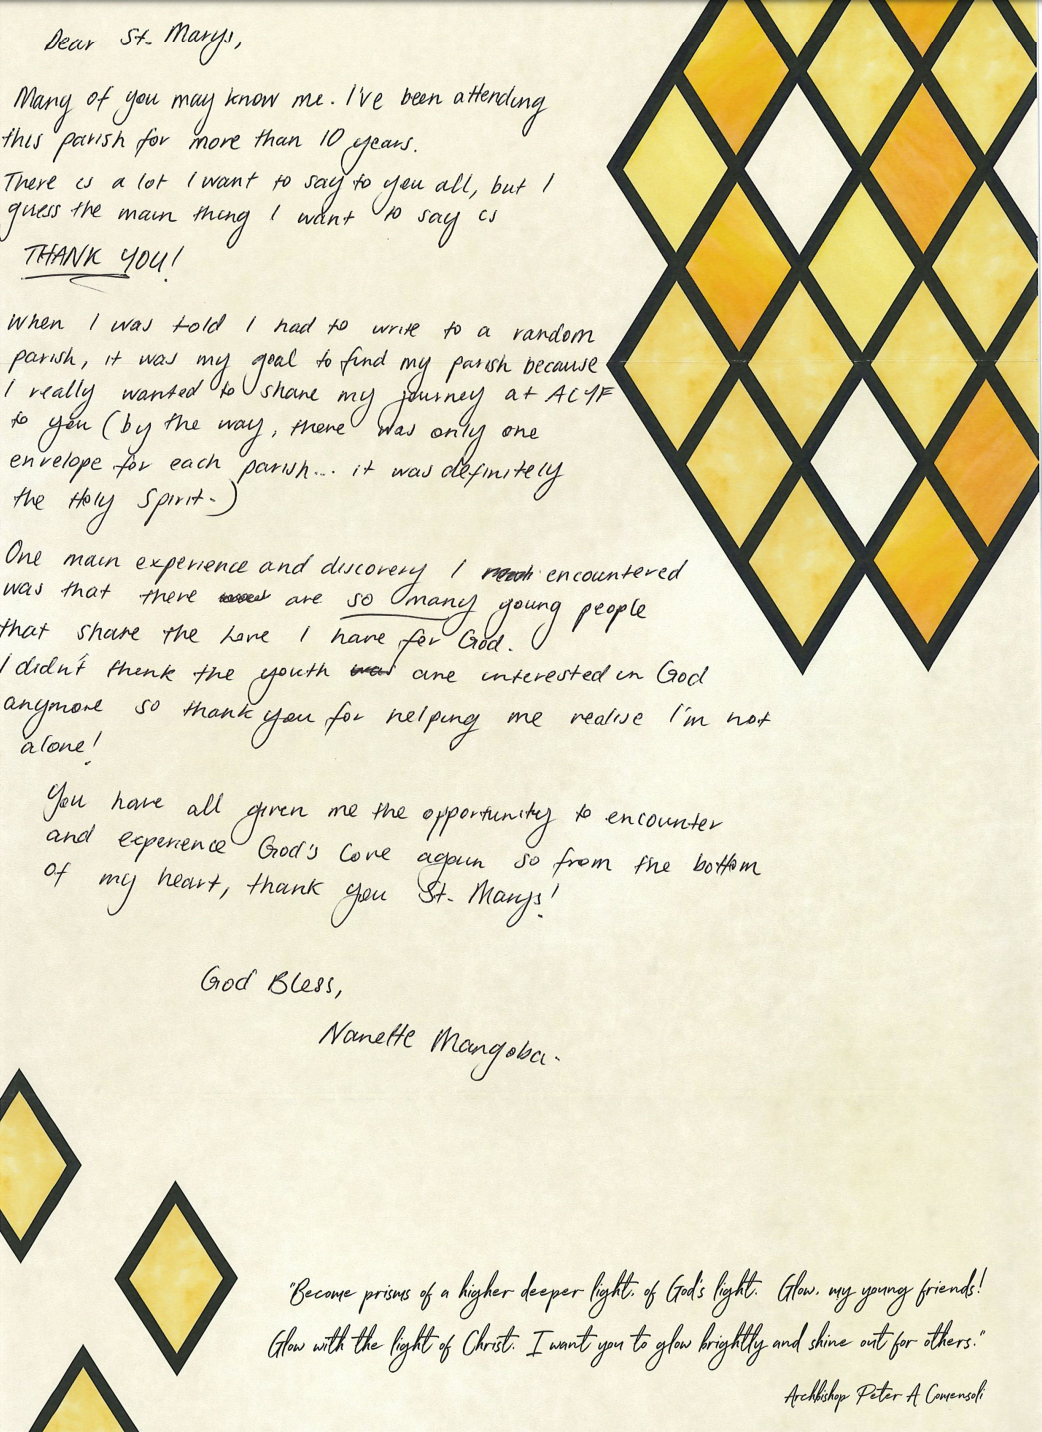 Dear St. Marys,
Many of you may know me. I've been attending
this parish for more than 10 years.
There is a lot I want to say to you all, but I
guess the main thing I want to say is
THANK YOU!
When I was told I had to write to a random
parish, it was my goal to find my parish because
I really wanted to share my journey at ACYF
to you (by the way, there was only one
envelope for each parish... it was definitely
the Holy Spirit.)
One main experience and discovery I encountered
was that there are so many young people
that share the love I have for God.
I didn't think the youth are interested in God
anymore so thank you for helping me realise I'm not
alone!
You have all given me the opportunity to encounter
and experience God's love again so from the bottom
of my heart, thank you St. Marys!
God Bless,
Nanette Mangoba.
"Become prisms of a higher deeper light, of God's light. Glow, my young friends!
Glow with the light of Christ. I want you to glow brightly and shine out for others."
Archbishop Peter A Comensoli